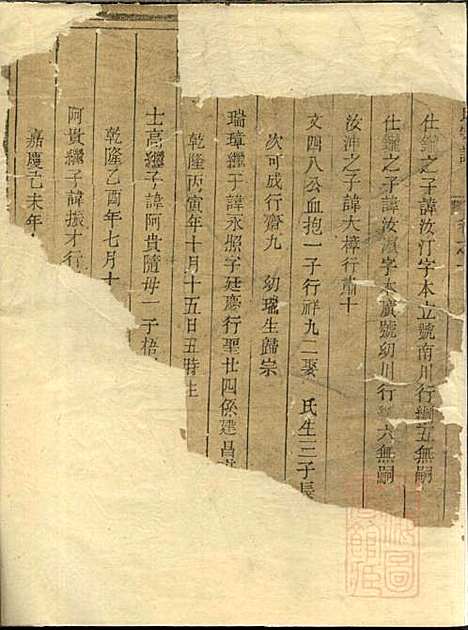 仕鑑之子諱汝汀字本立號南川行𬗟五無嗣
仕鑑之子諱汝濵字本廣號幼川行 六無嗣
汝沛之子諱大樟行肅十
文四八公血抱一子行祥九二娶 氏生三子長
次可成行齋九 幼瑞生歸宗
瑞璋繼子諱永照字廷慶行聖廿四係建昌
乾隆丙寅年十月十五日丑時生
士高繼子諱阿貴隨母一子梧
乾隆乙酉年七月十
阿貴繼子諱振才行
嘉慶己未年